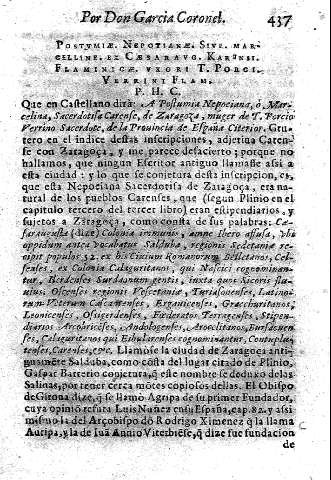 Por Don Garcia Coronel. 437
POSTVMIÆ. NEPOTIANÆ. SIVE. MAR-
CELLINÆ. EX CÆSARAVG. KARENSI.
FLAMINICÆ. VXORI T. PORCI.
VERRINI FLAM.
P. H. C.
Que en Castellano dirà: A Postumia Nepociana, ò, Mar-
celina, Sacerdotisa Carense, de Zaragoça, muger de T. Porcio
Verrino Sacerdote, de la Provincia de España Citerior. Gru-
tero en el indice destas inscripciones, adjetiva Caren-
se con Zaragoça, y me parece desacierto; porque no
hallamos, que ningun Escritor antiguo llamasse assi a
esta ciudad: y lo que se conjetura desta inscripcion, es,
que esta Nepociana Sacerdotisa de Zaragoça, era na-
tural de los pueblos Carenses, que (segun Plinio en el
capitulo tercero del tercer libro) eran estipendiarios, y
sujetos a Zaragoça, como consta de sus palabras: Cæ-
saraugusta (dize) Colonia immunis, amne Ibero affusa, vbi
oppidum antea vocabatur Salduba, regionis Sedetaniæ re-
cipit populos 52. ex his Civium Romanorum Bellitanos, Cel-
senses, ex Colonia Calaguritanos, qui Nascici cognominan-
tur, Ilerdenses Surdaonum gentis, iuxta quos Sicoris flu-
uius, Oscenses regionis Vescetaniæ, Turiasonenses, Latino-
rum Veterum Cascantenses, Ergavicenses, Gracchuritanos,
Leonicenses, Osigerdenses, Fœderatos Tarragenses, Stipen-
diarios Arcobricenses, Andologenses, Arocelitanos, Bursaonen-
ses, Calaguritanos qui Fibularenses cognominantur, Complu-
tenses, Carenses, &c. Llamòse la ciudad de Zaragoça anti-
guamẽte Salduba, como cõsta del lugar citado de Plinio,
Gaspar Barreiro conjetura, q̃ este nombre se deduxo de las
Salinas, por tener cerca mõtes copiosos dellas. El Obispo
de Girona dize, q̃ se llamò Agripa de su primer Fundador,
cuya opinio refuta Luis Nunez en su España, cap. 82. y assi
mismo la del Arçobispo dõ Rodrigo Ximenez q̃ la llama
Auripa, y la de Iuã Annio Viterbiẽse, q̃ dize fue fundacion
de